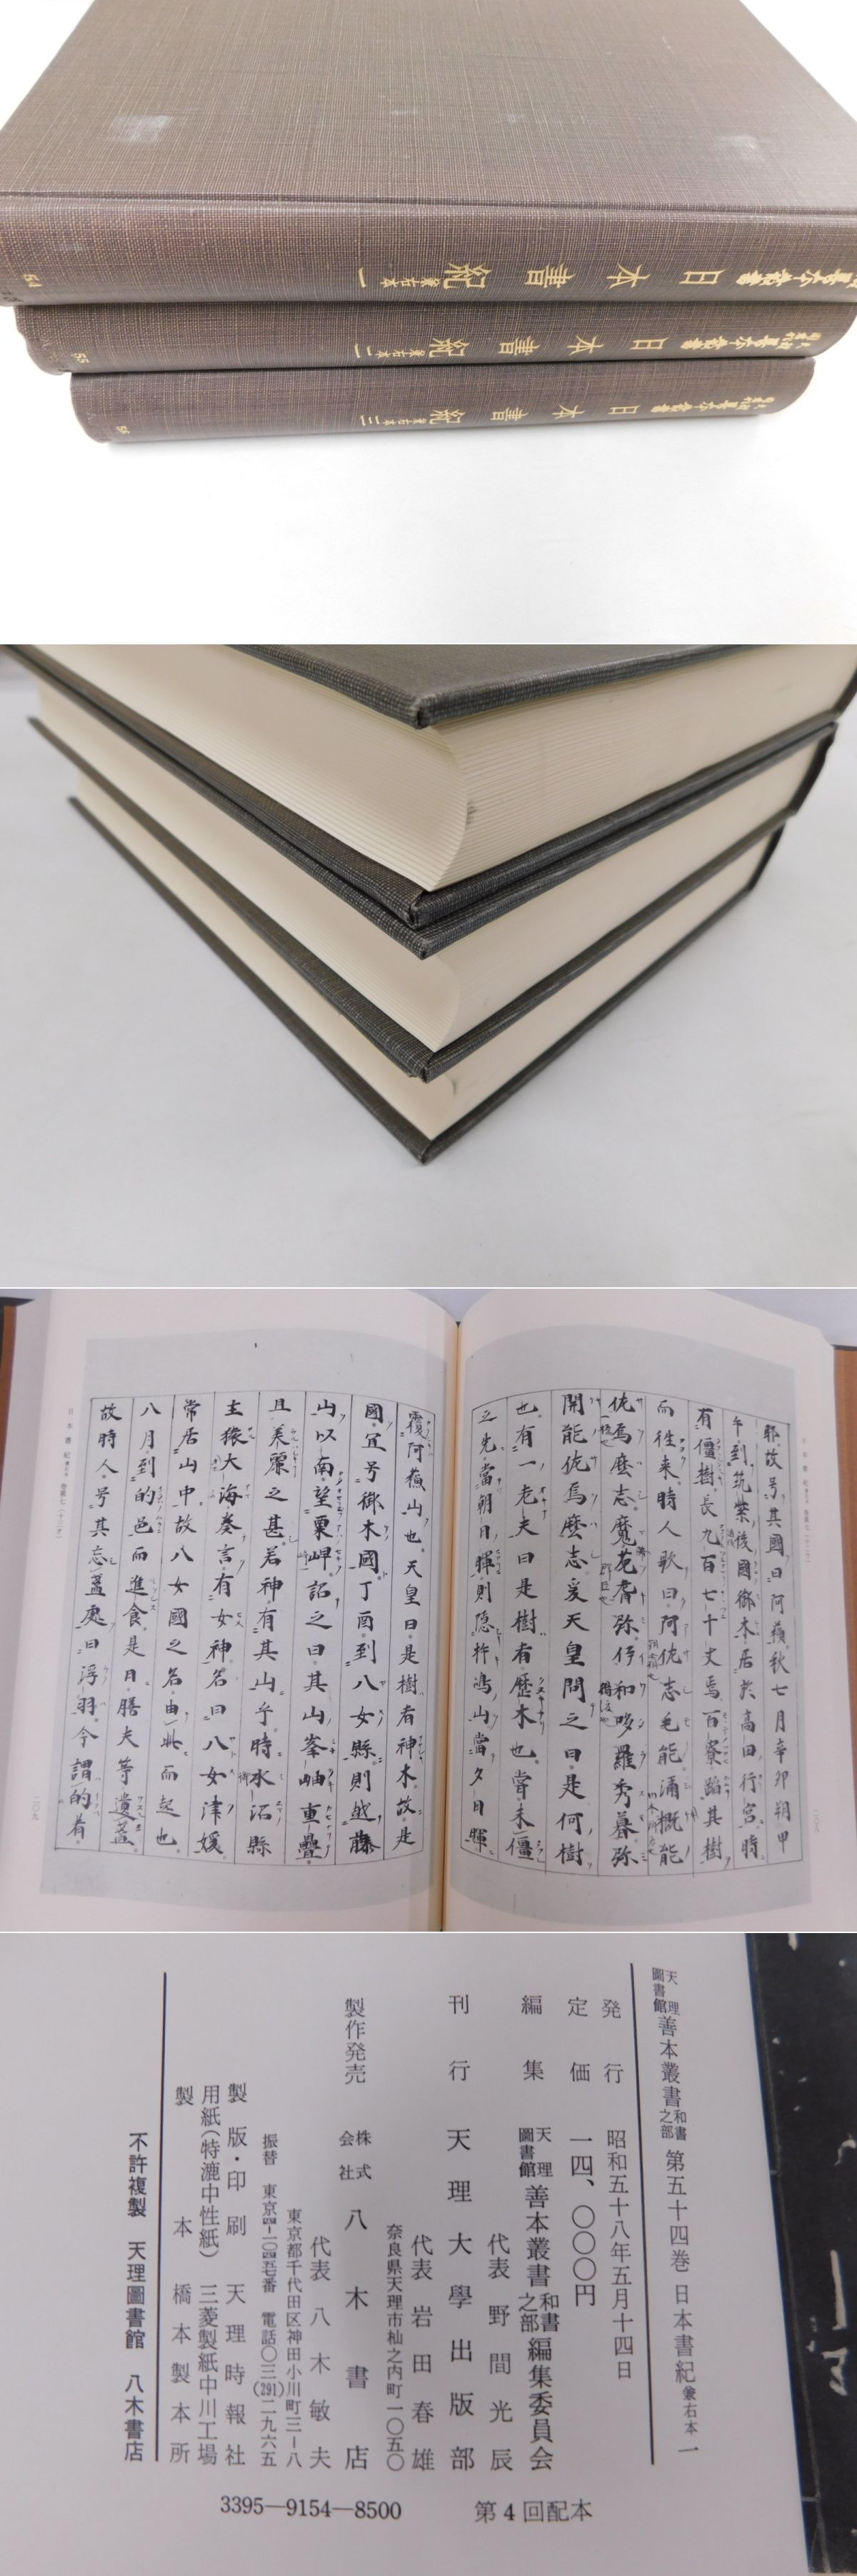 善本叢書 日本書紀 兼右本一
54
善本叢書 日本書紀 兼右本二
55
善本叢書 日本書紀 兼右本三
56
耶故号其國曰阿蘓秋七月辛卯朔甲
午到筑紫後國御木居於高田行宮時
有僵樹長九百七十丈焉百寮蹈其樹
而徃来時人歌曰阿佐志毛能涌概能
佐焉麼志魔菟耆弥伊和哆羅秀暮弥
開能佐焉麼志爰天皇問之曰是何樹
也有一老夫曰是樹者歴木也甞未僵
之先當朝日暉則隠杵嶋山當夕日暉
覆阿蘓山也天皇曰是樹者神木故是
國宜号御木國丁酉到八女縣則越藤
山以南望粟岬詔之曰其山峯岫重疊
且美麗之甚若神有其山乎時水沼縣
主猿大海奏言有女神名曰八女津媛
常居山中故八女國之名由此而起也
八月到的邑而進食是日膳夫等遺盞
故時人号其忘盞處曰浮羽今謂的者
日本書紀 兼右本 巻第七(十三オ)
二〇九
天理圖書館善本叢書和書之部 第五十四巻 日本書紀兼右本 一
発行 昭和五十八年五月十四日
定価 一四、〇〇〇円
編集 天理圖書館善本叢書和書之部編集委員会
代表 野間光辰
刊行 天理大學出版部
代表 岩田春雄
奈良県天理市杣之内町一〇五〇
製作発売 株式会社 八木書店
代表 八木敏夫
東京都千代田区神田小川町三ー八
振替 東京四ー一〇四五七番 電話〇三(291)二九六五
製版・印刷 天理時報社
用紙(特漉中性紙) 三菱製紙中川工場
製本 橋本製本所
不許複製 天理圖書館 八木書店
3395―9154―8500
第4回配本